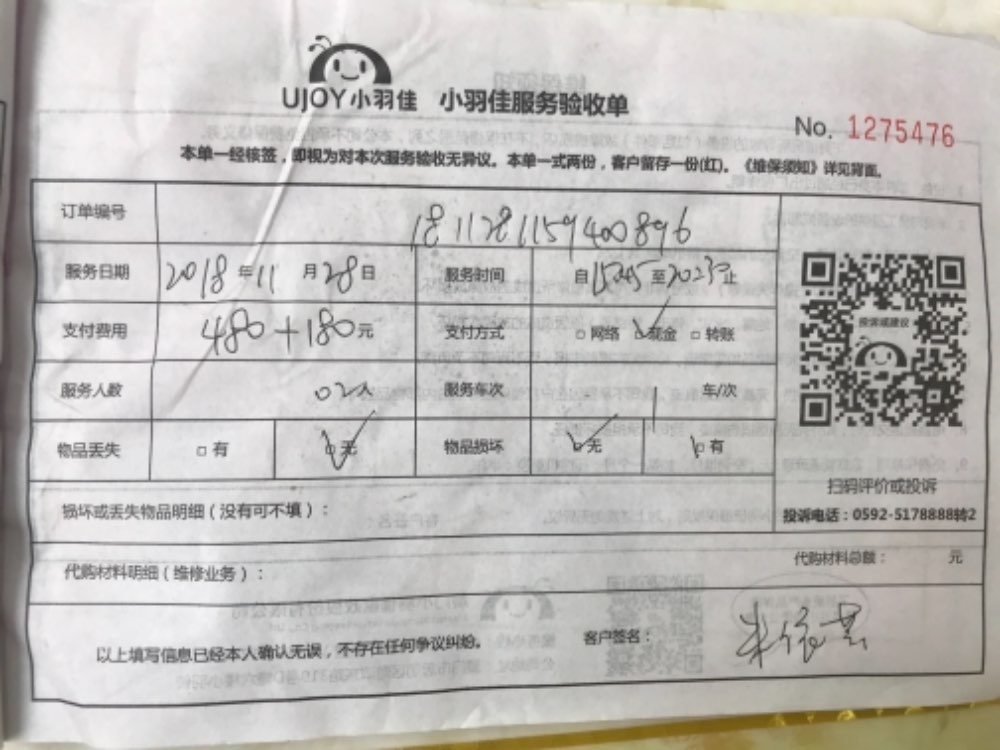 UJOY小羽佳 小羽佳服务验收单
No. 1275476
本单一经核签，即视为对本次服务验收无异议。本单一式两份，客户留存一份(红)。《维保须知》详见背面。
订单编号 1811281159400896
服务日期 2018年11月28日 服务时间 自 至 止
支付费用 480+180元 支付方式 □网络 ☑现金 □转账
投诉或建议
服务人数 02人 服务车次 车/次
物品丢失 □有 ☑无 物品损坏 ☑无 □有
扫码评价或投诉
损坏或丢失物品明细（没有可不填）：
投诉电话：0592-5178888转2
代购材料明细（维修业务）： 代购材料总额： 元
以上填写信息已经本人确认无误，不存在任何争议纠纷。 客户签名：